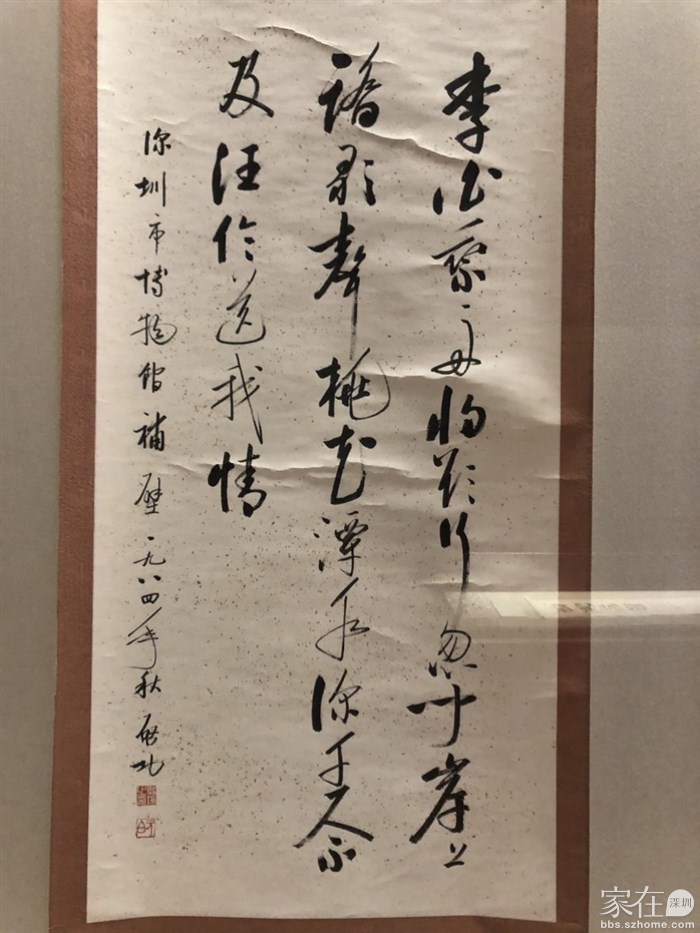 李白乘舟将欲行忽听岸上
踏歌聲桃花潭水深千尺不
及汪倫送我情
深圳市博物館補壁 一九八四年秋 启功
家在深圳
bbs.szhome.com